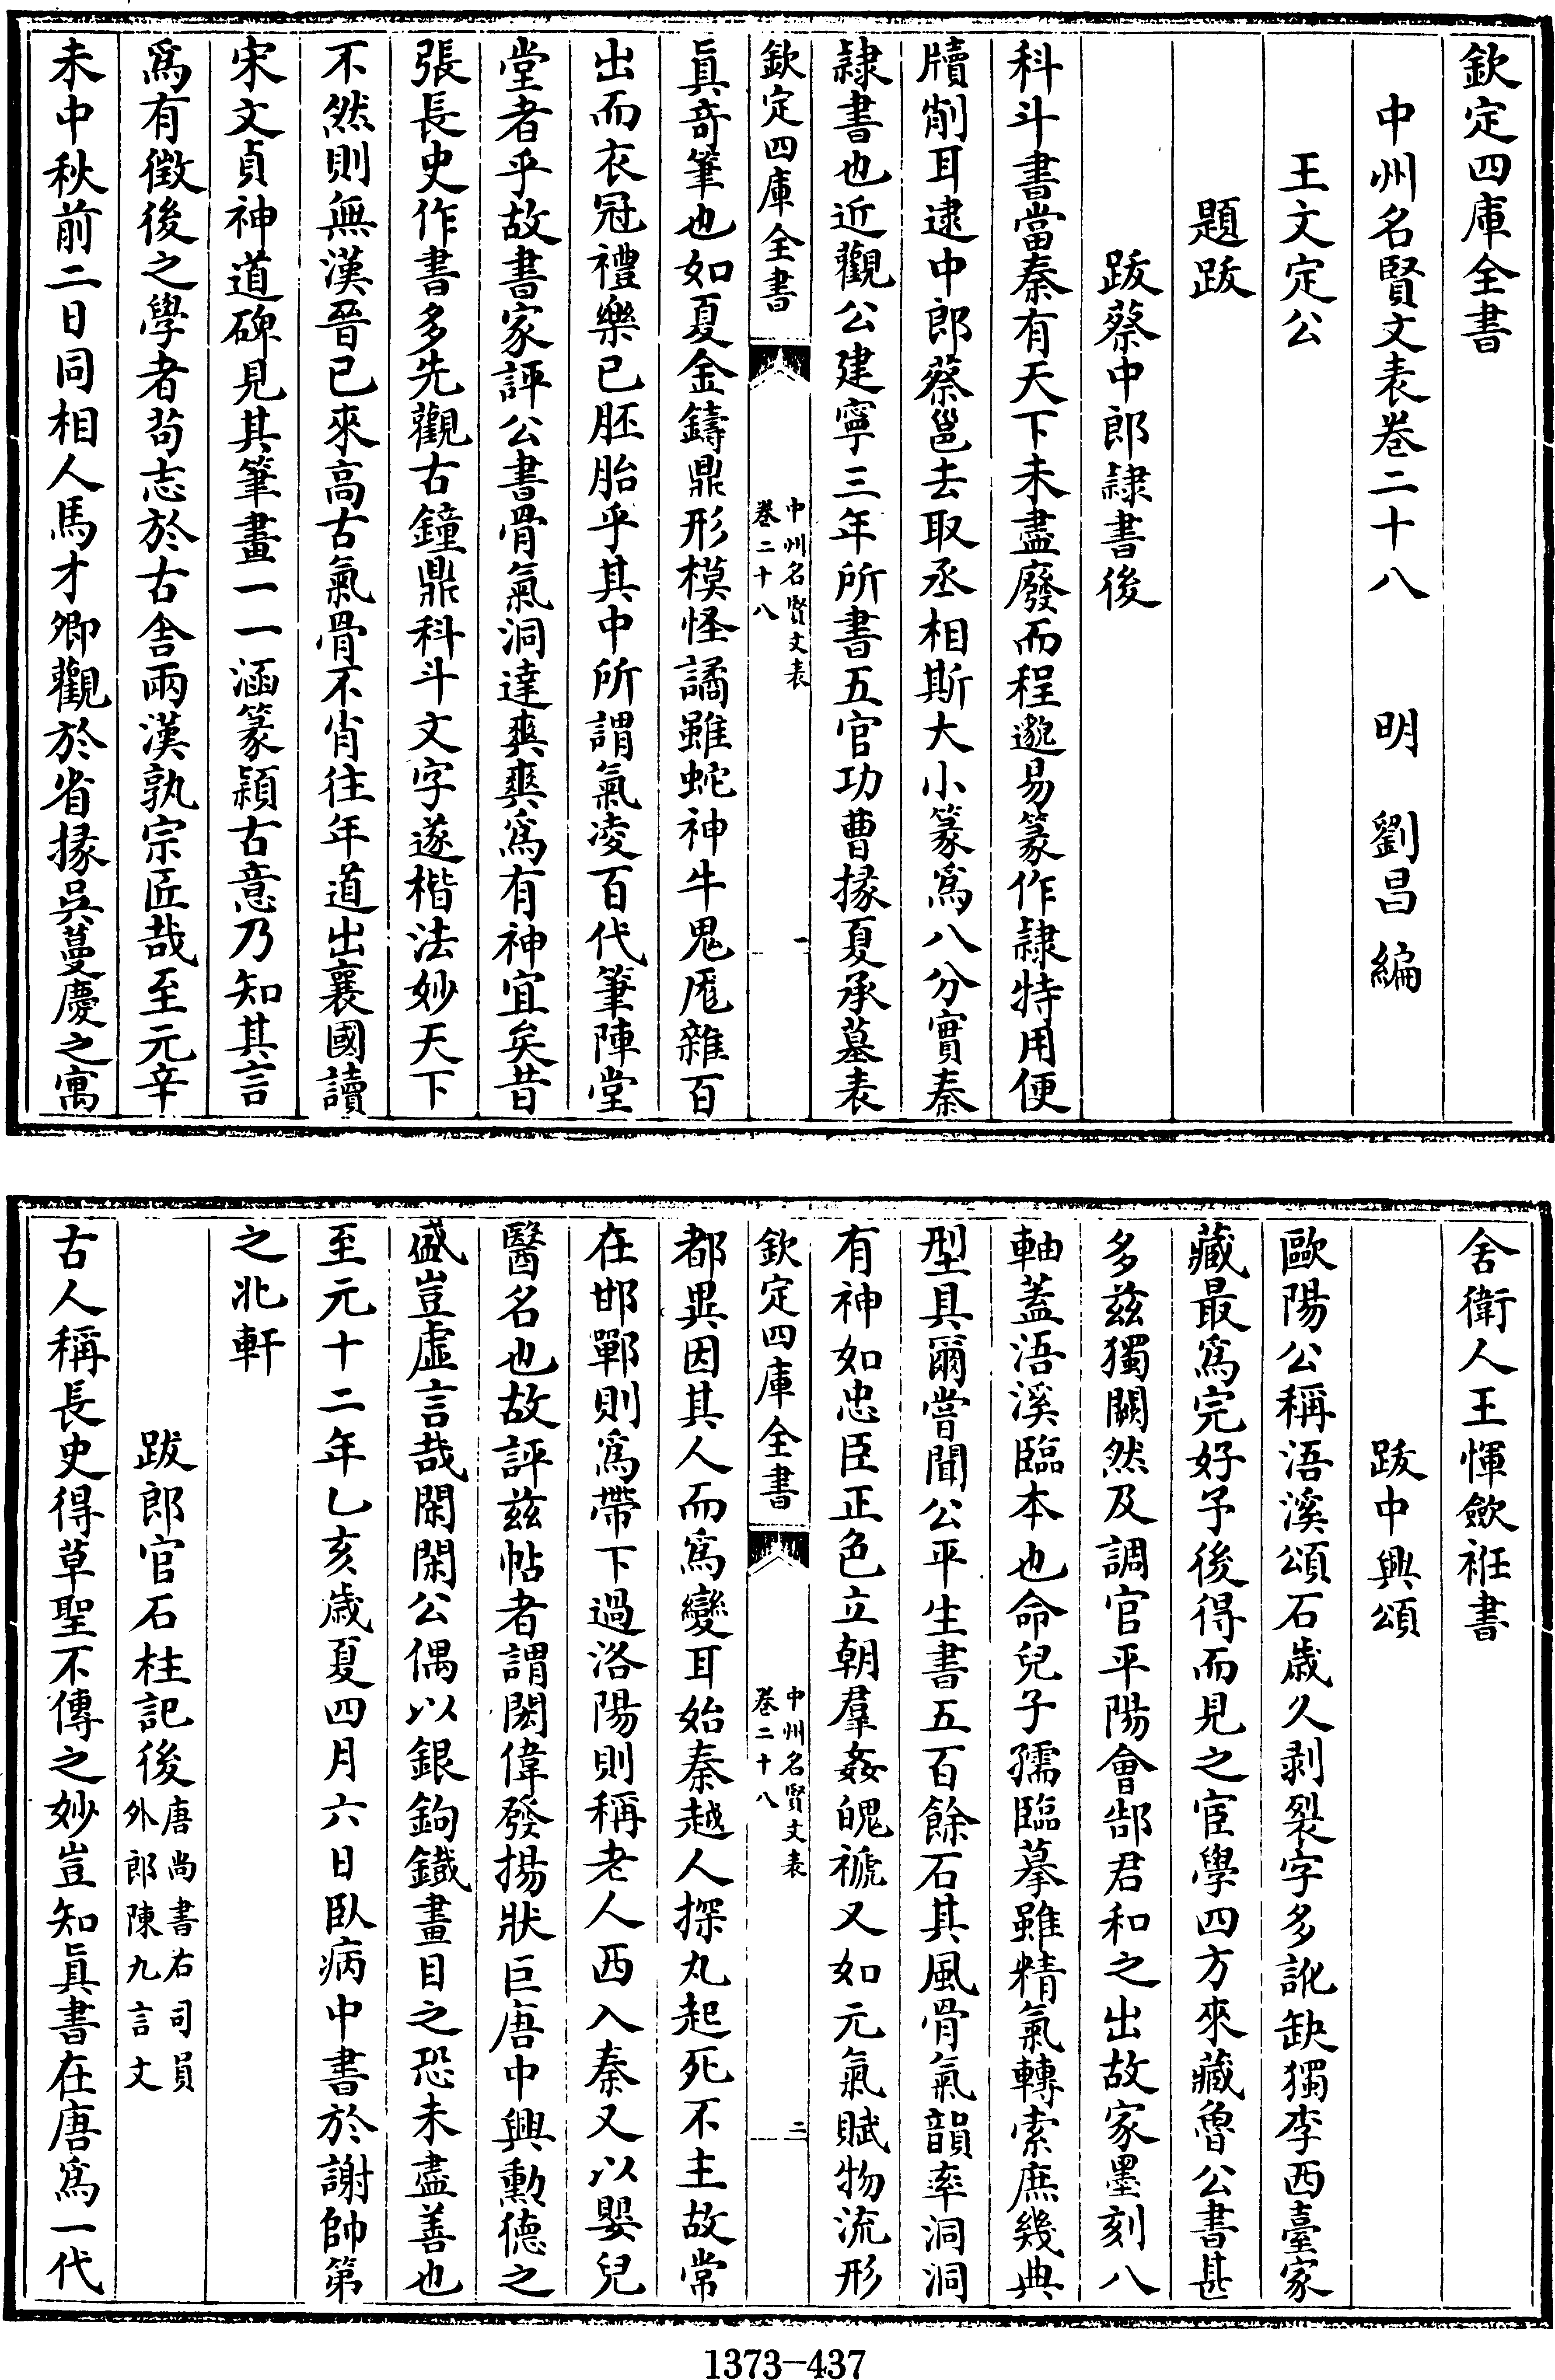 欽定四庫全書
中州名賢文表卷二十八　　明　劉昌　編
王文定公
題跋
跋蔡中郎隷書後
科斗書當秦有天下未盡廢而程邈易篆作隷特用便
牘削耳逮中郎蔡邕去取丞相斯大小篆為八分實秦
隷書也近觀公建寧三年所書五官功曹掾夏承墓表
欽定四庫全書
中州名賢文表
卷二十八
一
眞竒筆也如夏金鑄鼎形模怪譎雖蛇神牛鬼厖雜百
出而衣冠禮樂已胚胎乎其中所謂氣凌百代筆陣堂
堂者乎故書家評公書骨氣洞達爽爽為有神宜矣昔
張長史作書多先觀古鐘鼎科斗文字遂楷法妙天下
不然則無漢晉已來高古氣骨不肖往年道出襄國讀
宋文貞神道碑見其筆畫一一涵篆穎古意乃知其言
為有徵後之學者茍志於古舍兩漢孰宗匠哉至元辛
未中秋前二日同相人馬才卿觀於省掾吳蔓慶之寓
舍衛人王惲歛袵書
跋中興頌
歐陽公稱浯溪頌石歲久剥裂字多訛缺獨李西臺家
藏最為完好予後得而見之宦學四方來藏魯公書甚
多兹獨闕然及調官平陽會郝君和之出故家墨刻八
軸蓋浯溪臨本也命兒子孺臨摹雖精氣轉索庶幾典
型具爾嘗聞公平生書五百餘石其風骨氣韻率洞洞
有神如忠臣正色立朝羣姦魄褫又如元氣賦物流形
欽定四庫全書
中州名賢文表
卷二十八
二
都異因其人而為變耳始秦越人探丸起死不主故常
在邯鄲則為帶下過洛陽則稱老人西入秦又以嬰兒
醫名也故評兹帖者謂閎偉發揚狀巨唐中興勲德之
盛豈虚言哉閑閑公偶以銀鉤鐡畫目之恐未盡善也
至元十二年乙亥歳夏四月六日臥病中書於謝帥第
之北軒
跋郎官石柱記後唐尚書右司員外郎陳九言文
古人稱長史得草聖不傳之妙豈知眞書在唐為一代
1373-437